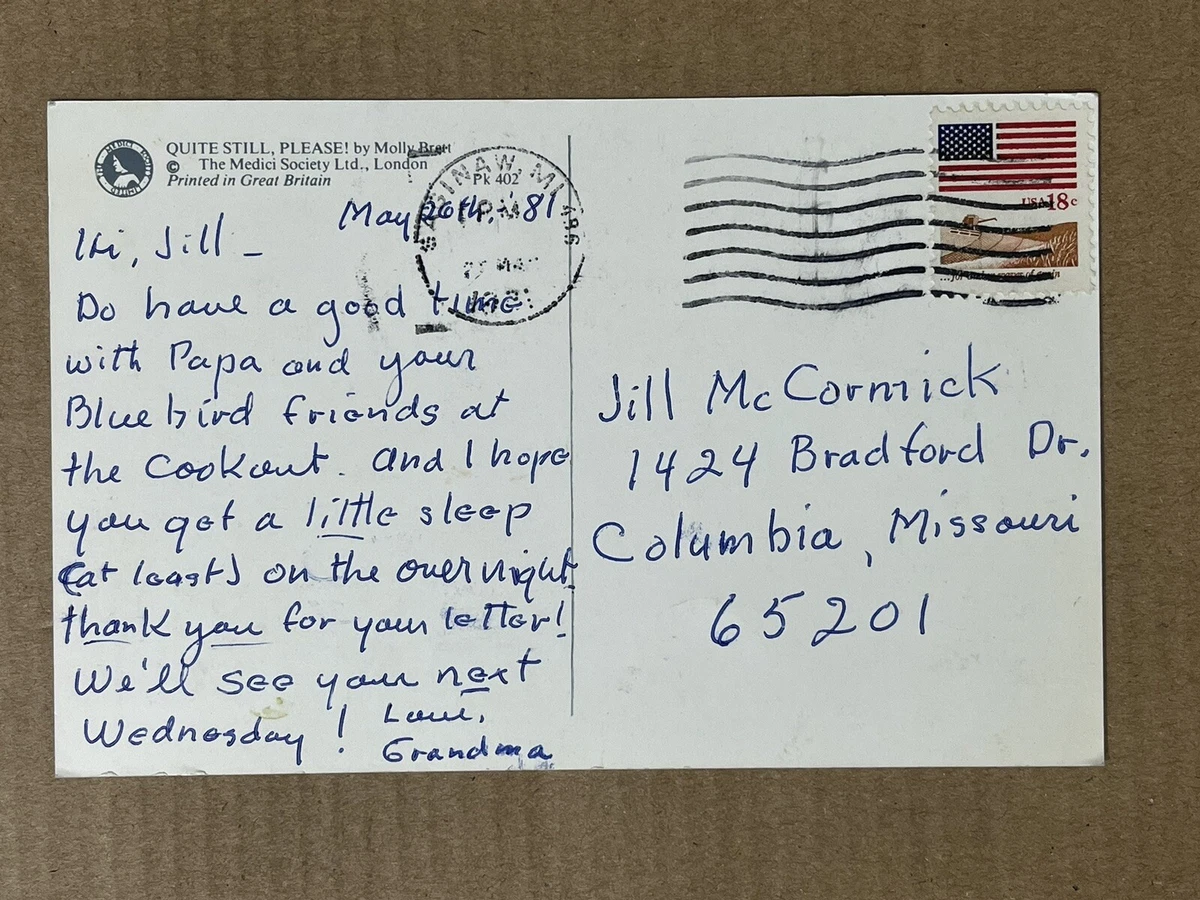 QUITE STILL, PLEASE! by Molly Brett
© The Medici Society Ltd., London
Printed in Great Britain
Pk 402
SAGINAW, MI 486
PM
1981
USA 18c
...for amber waves of grain
May 26th, '81
Hi, Jill –
Do have a good time
with Papa and your
Bluebird friends at
the Cookout. And I hope
you get a little sleep
(at least) on the overnight.
thank you for your letter!
We'll see you next
Wednesday! Love,
Grandma
Jill McCormick
1424 Bradford Dr.
Columbia, Missouri
65201